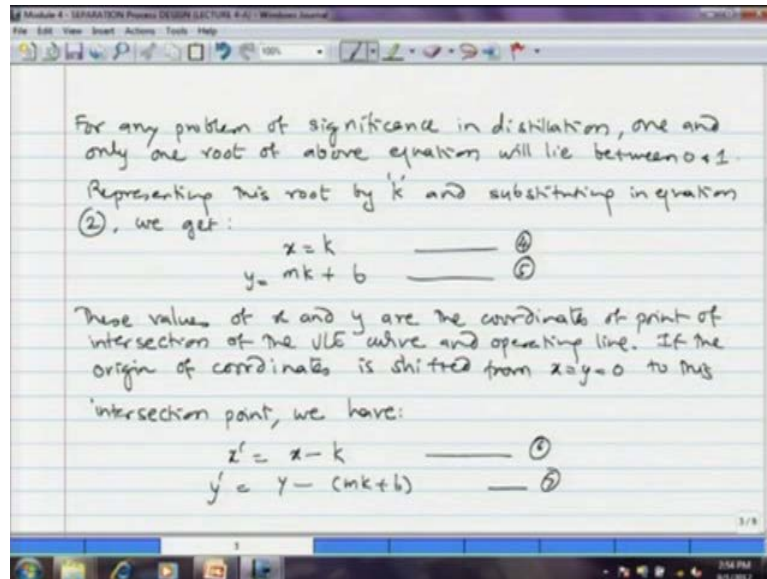 Module 4 - SEPARATION Process DESIGN (LECTURE 4-A) - Windows Journal
File Edit View Insert Actions Tools Help
100%
For any problem of significance in distillation, one and
only one root of above equation will lie between 0 & 1.
Representing this root by 'k' and substituting in equation
②, we get:
x = k ——— ④
y = mk + b ——— ⑤
These values of x and y are the coordinates of point of
intersection of the VLE curve and operating line. If the
origin of coordinates is shifted from x=y=0 to this
intersection point, we have:
x' = x - k ——— ⑥
y' = y - (mk+b) — ⑦
3/8
3
2:54 PM